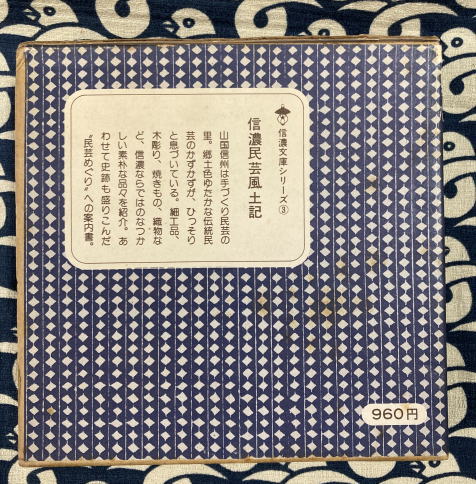 信濃文庫シリーズ③
信濃民芸風土記
山国信州は手づくり民芸の
里。郷土色ゆたかな伝統民
芸のかずかずが、ひっそり
と息づいている。細工品、
木彫り、焼きもの、織物な
ど、信濃ならではのなつか
しい素朴な品々を紹介。あ
わせて史跡も盛りこんだ
〝民芸めぐり〟への案内書。
960円